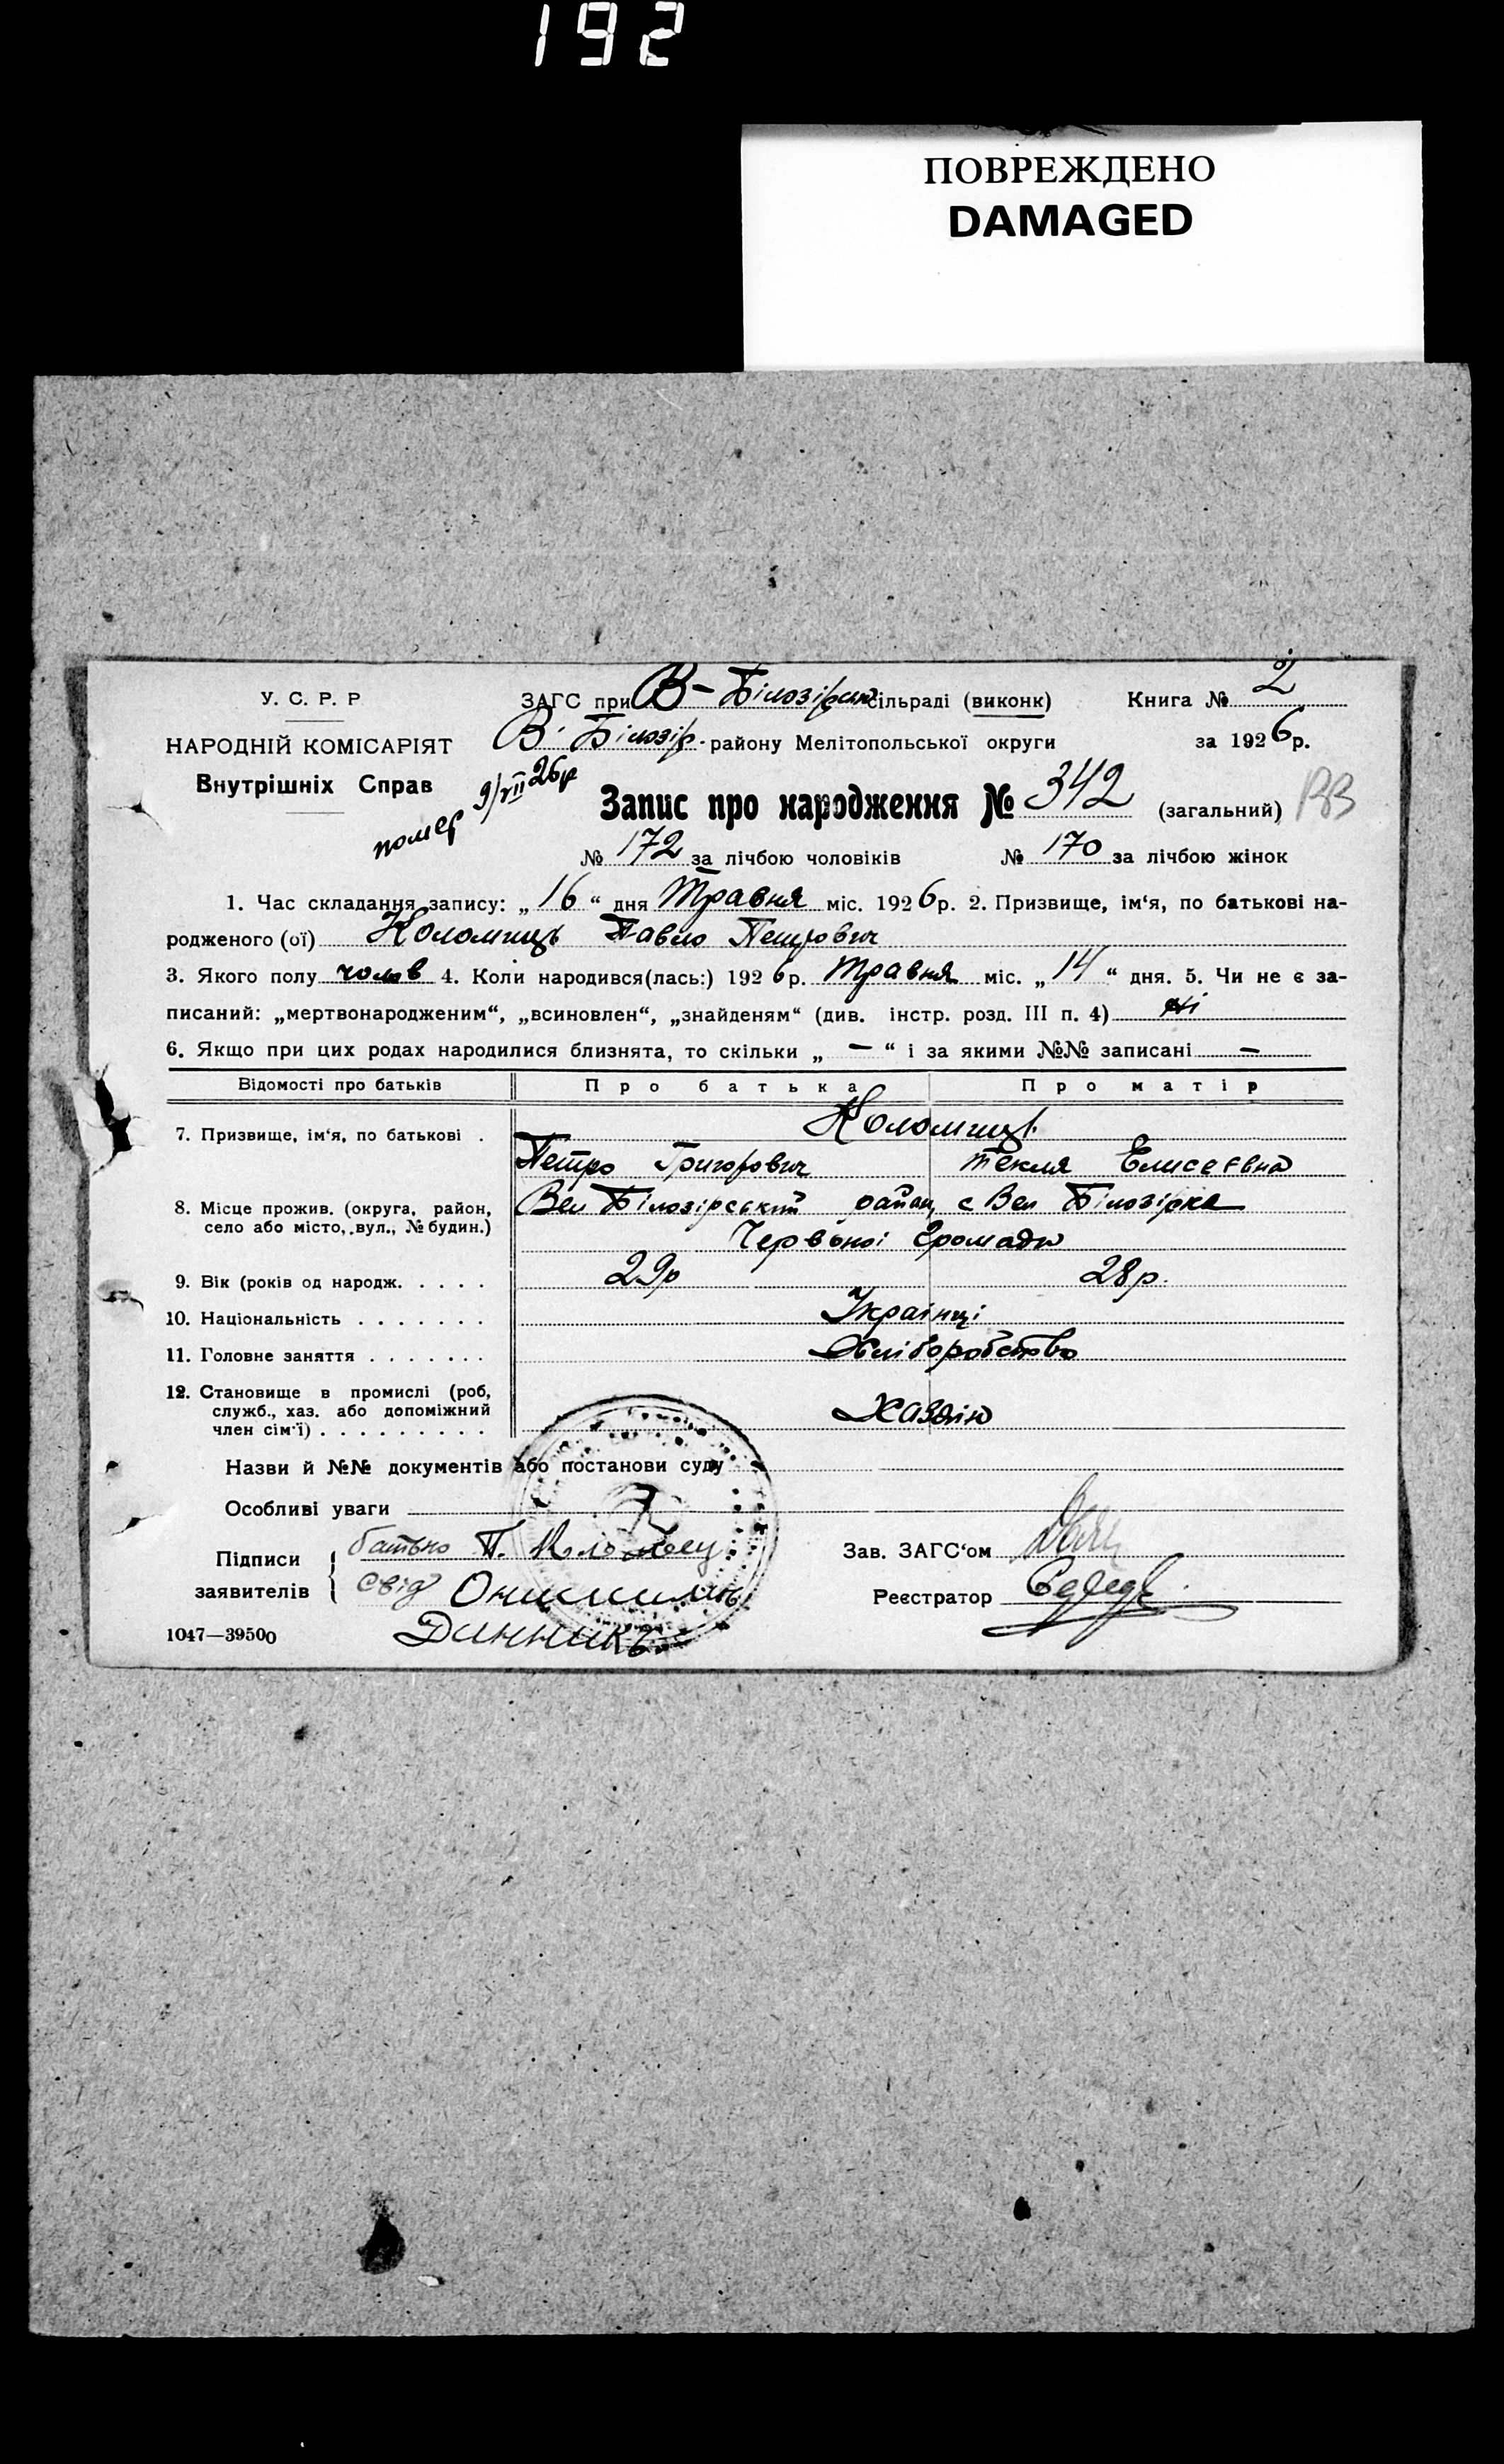 192
ПОВРЕЖДЕНО
DAMAGED
У. С. Р. Р
НАРОДНІЙ КОМІСАРІЯТ
Внутрішніх Справ
ЗАГС при В-Білозірск сільраді (виконк) Книга № 2
В. Білозір. району Мелітопольської округи за 1926 р.
помер 9/VII 26р
Запис про народження № 342 (загальний)
№ 172 за лічбою чоловіків № 170 за лічбою жінок
1. Час складання запису: „16“ дня Травня міс. 1926 р. 2. Призвище, ім‘я, по батькові на-
родженого (ої) Коломиць Павло Петрович
3. Якого полу чолов 4. Коли народився(лась:) 1926 р. Травня міс. „14“ дня. 5. Чи не є за-
писаний: „мертвонародженим“, „всиновлен“, „знайденям“ (див. інстр. розд. III п. 4) ні
6. Якщо при цих родах народилися близнята, то скільки „—“ і за якими №№ записані —
Відомості про батьків Про батька Про матір
7. Призвище, ім‘я, по батькові . Коломиць
Петро Григорович Текля Елисеєвна
8. Місце прожив. (округа, район, Вел Білозірський район с Вел Білозірка
село або місто, вул., № будин.)
Червоної Громади
9. Вік (років од народж. . . . . 29р 28р.
10. Національність . . . . . . . Українці
11. Головне заняття . . . . . . . Хліборобство
12. Становище в промислі (роб,
служб., хаз. або допоміжний Хазяїн
член сім‘ї) . . . . . . . . .
Назви й №№ документів або постанови суду
Особливі уваги
Підписи
заявителів
батько П.
Свід
Динникъ
Зав. ЗАГС‘ом
Реєстратор
1047—39500